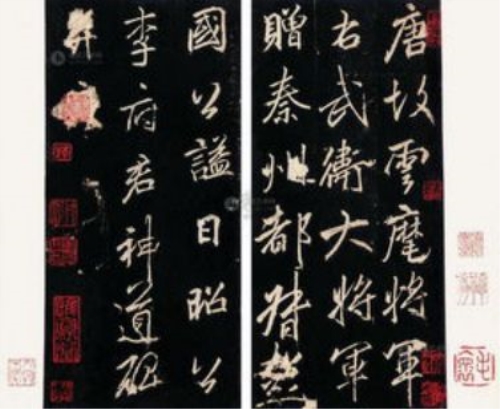 唐故雲麾將軍
右武衛大將軍
贈秦州都督彭
國公謚曰昭公
李府君神道碑
并